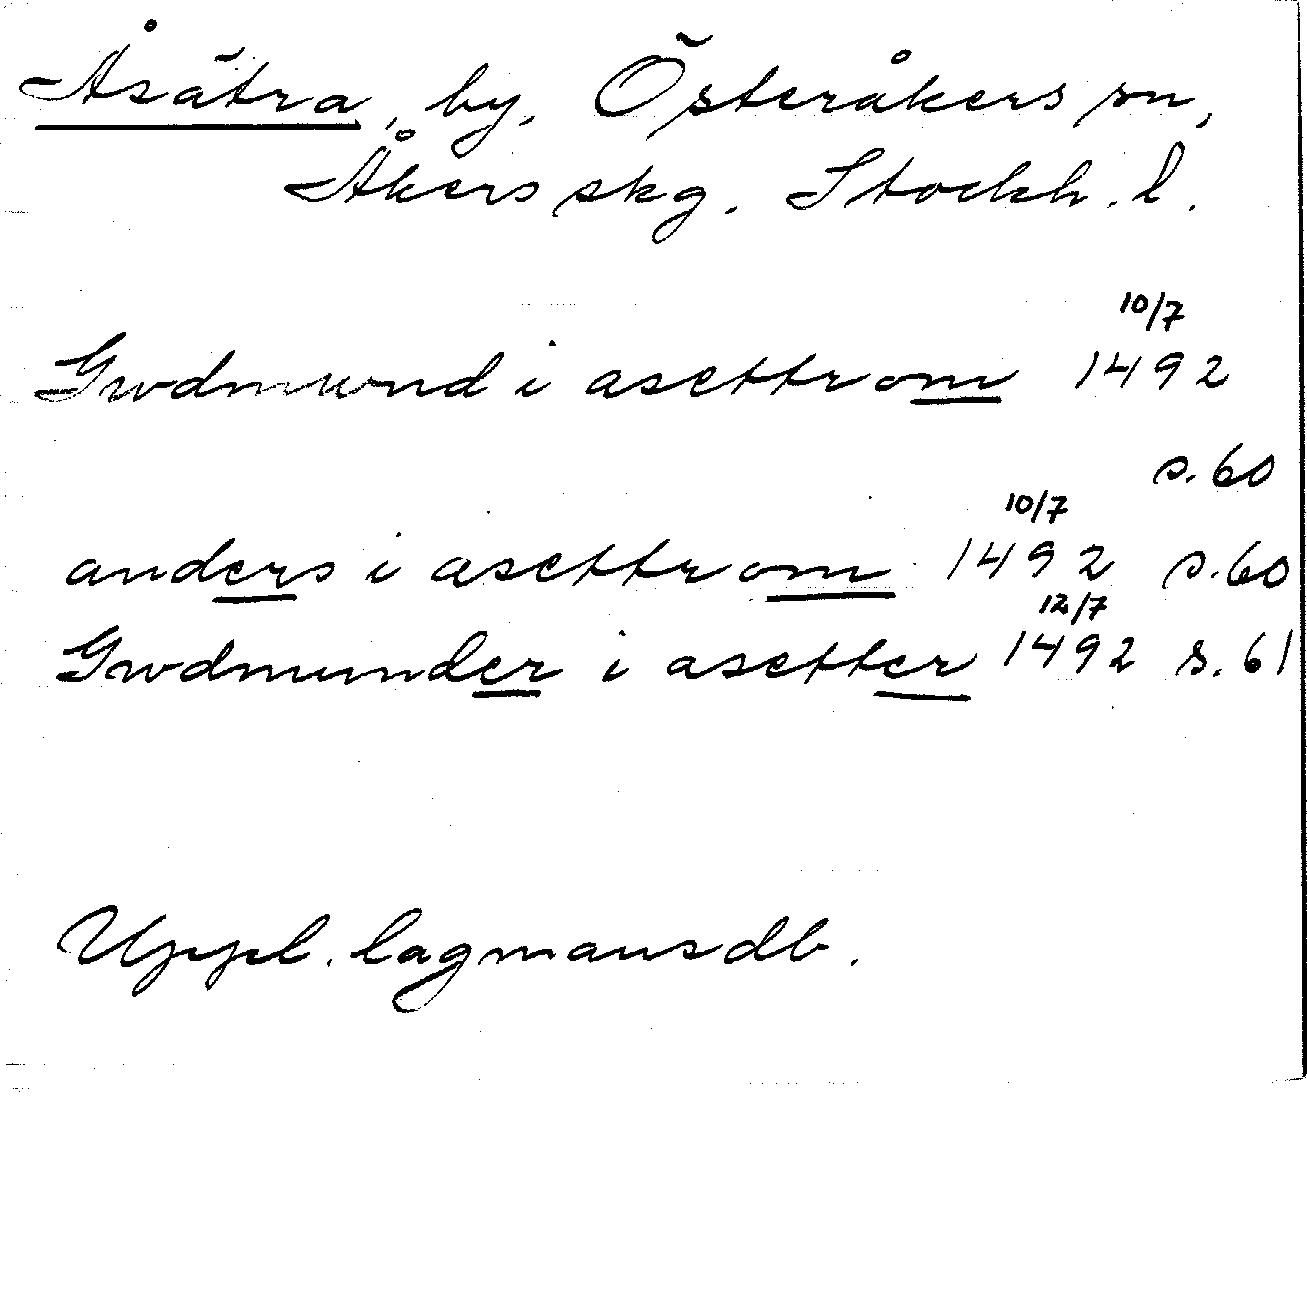 Åsätra, by, Österåkers sn,
Åkers skg. Stockh. l.
10/7
Gwdmwnd i asettrom 1492
s. 60
10/7
anders i asettrom 1492 s. 60
12/7
Gwdmunder i asetter 1492 s. 61
Uppl. lagmansdb.